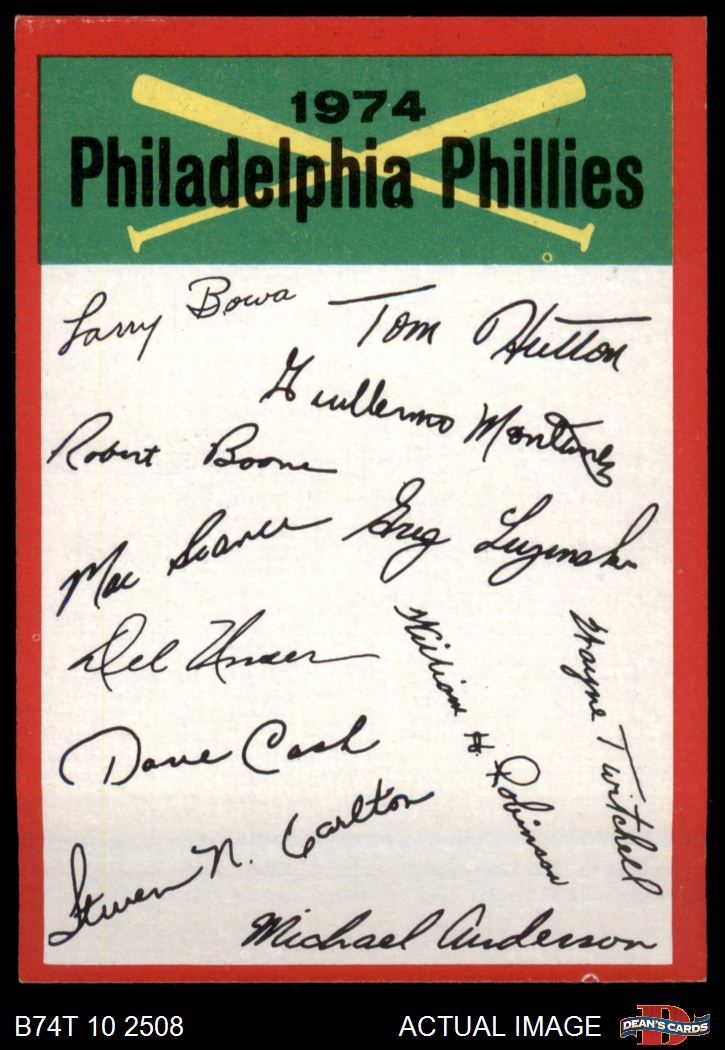 1974
Philadelphia Phillies
Larry Bowa
Tom Hutton
Guillermo Montanez
Robert Boone
Mac Scarce
Greg Luzinski
Del Unser
William H. Robinson
Wayne Twitchell
Dave Cash
Steven N. Carlton
Michael Anderson
B74T 10 2508
ACTUAL IMAGE
D
DEAN'S CARDS